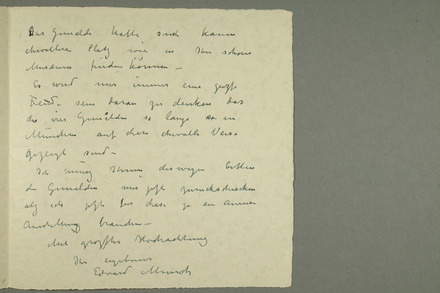 Das Gemälde hatte auch kaum
Platz wie in Ihr schöne
Museum finden können –
Es wird uns immer eine große
Freude sein daran zu denken das
die vier Gemälden so lange in
München auf diese Weise
gezeigt sind –
Ich Ihnen deswegen bitten
die Gemälden mir jetzt zurückschicken
als ich jetzt diese zu
Ausstellung
Mit größter Hochachtung
Ihr ergebener
Edvard Munch